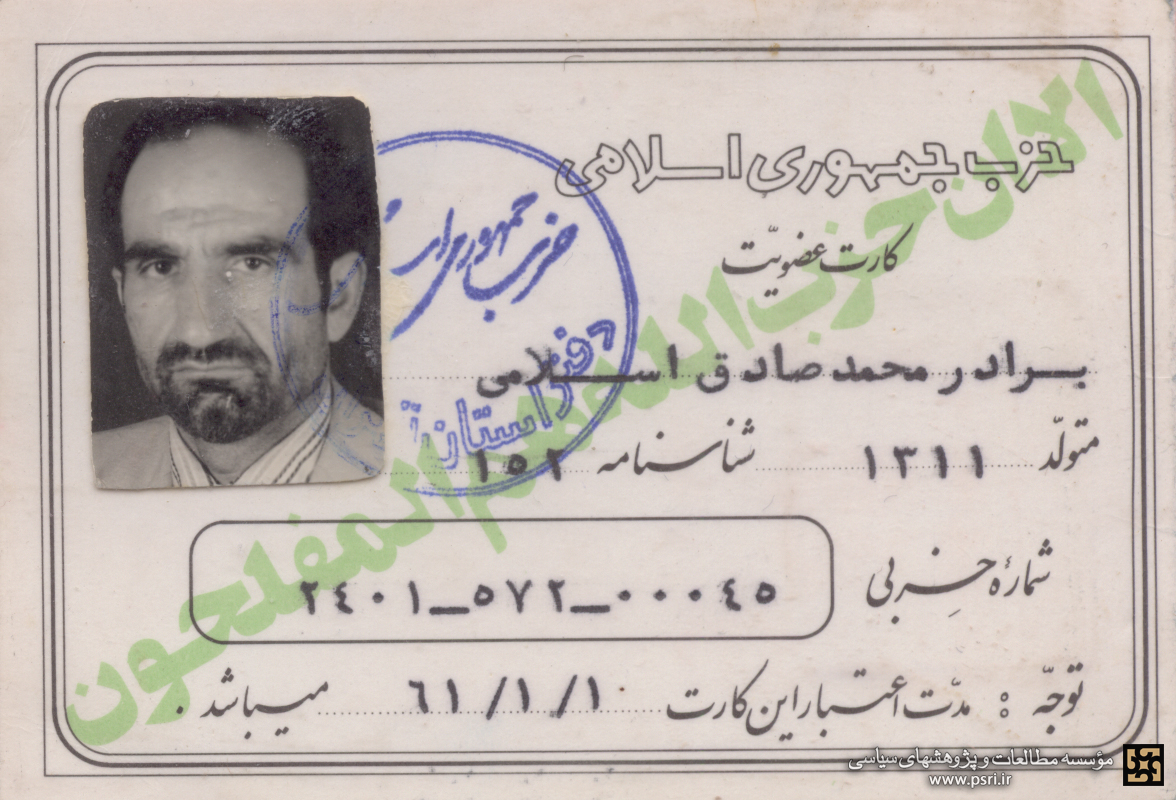 حزب جمهوری اسلامی
کارت عضویّت
برادر محمد صادق اسلامی
متولّد ١٣١١ شناسنامه ١٥٢
شمارهٔ حزبی ٢٤٠١_٥٧٢_٠٠٠٤٥
توجّه : مدّت اعتبار این کارت ٦١/١/١ میباشد .
الا ان حزب الله هم المفلحون
حزب جمهوری اس
دفتر استان
مؤسسه مطالعات و پژوهشهای سیاسی
www.psri.ir